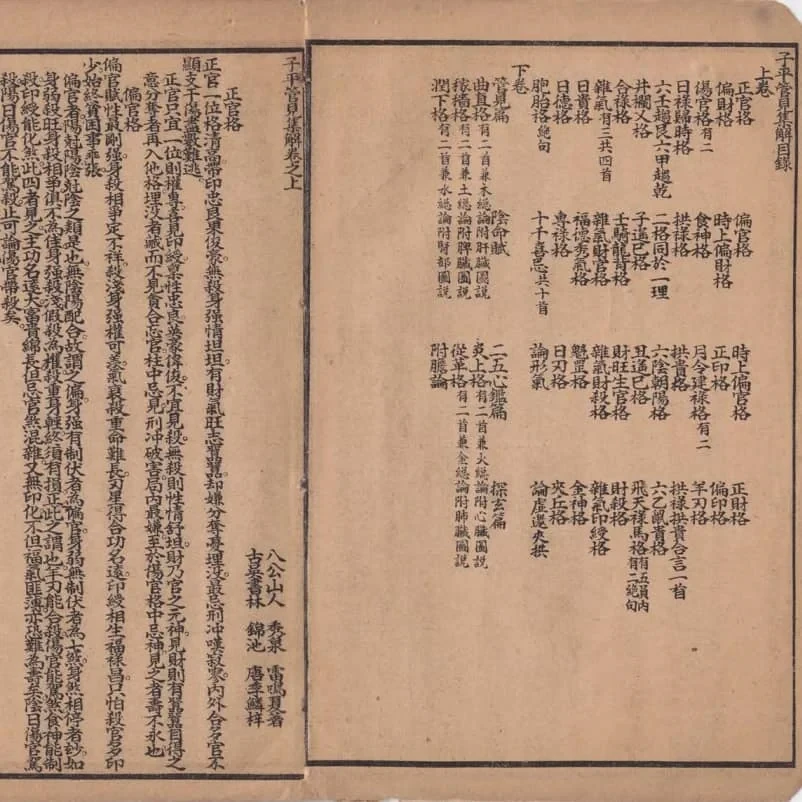 子平管見集解目錄
上卷
正官格 偏官格 時上偏官格 正財格
偏財格 時上偏財格 正印格 偏印格
傷官格有二 食神格 月令建祿格有二 羊刃格
日祿歸時格 拱祿格 拱貴格 拱祿拱貴合言一首
六壬趨艮六甲趨乾 二格同於一理 六陰朝陽格 六乙鼠貴格
井欄叉格 子遙巳格 丑遙巳格 飛天祿馬格有五員內有二絕句
合祿格 壬騎龍背格 財旺生官格 財殺格
雜氣有三共四首 雜氣財官格 雜氣財殺格 雜氣印綬格
日貴格 福德秀氣格 魁罡格 金神格
日德格 專祿格 日刃格 夾丘格
胞胎格絕句 十干喜忌共十首 論形氣 論虛邀夾拱
下卷
管見篇 陰命賦 二五心鑑篇 探玄篇
曲直格有二首兼木總論附肝臟圖説 炎上格有二首兼火總論附心臟圖説
稼穡格有二首兼土總論附脾臟圖説 從革格有二首兼金總論附肺臟圖説
潤下格有二首兼水總論附腎部圖説 附膽論
子平管見集解卷之上
八公山人 秀泉 雷鳴夏著
古吳書林 錦池 唐李鱗梓
正官格
正官一位格清高帶印忠良果俊豪無殺身強情坦坦有財氣旺志囂囂却嫌分奪憂埋沒最忌刑冲嘆寂寥內外合多官不
顯支干傷盡數難逃
正官只宜一位則權專喜見印綬稟性忠良英豪偉俊不宜見殺無殺則性情舒坦財乃官之元神見財則有囂囂自得之
意分奪者再入他格埋没者藏而不見貪合忘官柱中忌見刑冲破害局內最嫌至於傷官格中忌神見之者壽不永也
偏官格
偏官賦性最剛强身殺相爭定不祥殺淺身强權可羨氣衰殺重命難長刃星得合功名遠印綬相生福祿昌只怕殺官多印
少始終貧困事乖張
偏官者陽尅陽陰尅陰之類是也無陰陽配合故謂之偏身强有制伏者為偏官身弱無制伏者為七煞身煞相停者妙如
身弱殺旺身殺相爭俱不為佳身强殺淺假殺為權殺重身輕終須有損正此之謂也羊刃能合殺傷官能駕煞食神能制
殺印綬能化煞此四者見之主功名遠大富貴綿長但忌官煞混雜又無印化不但福氣匪薄亦恐難為壽矣陰日傷官駕
殺陽日傷官不能駕殺止可論傷官帶殺矣